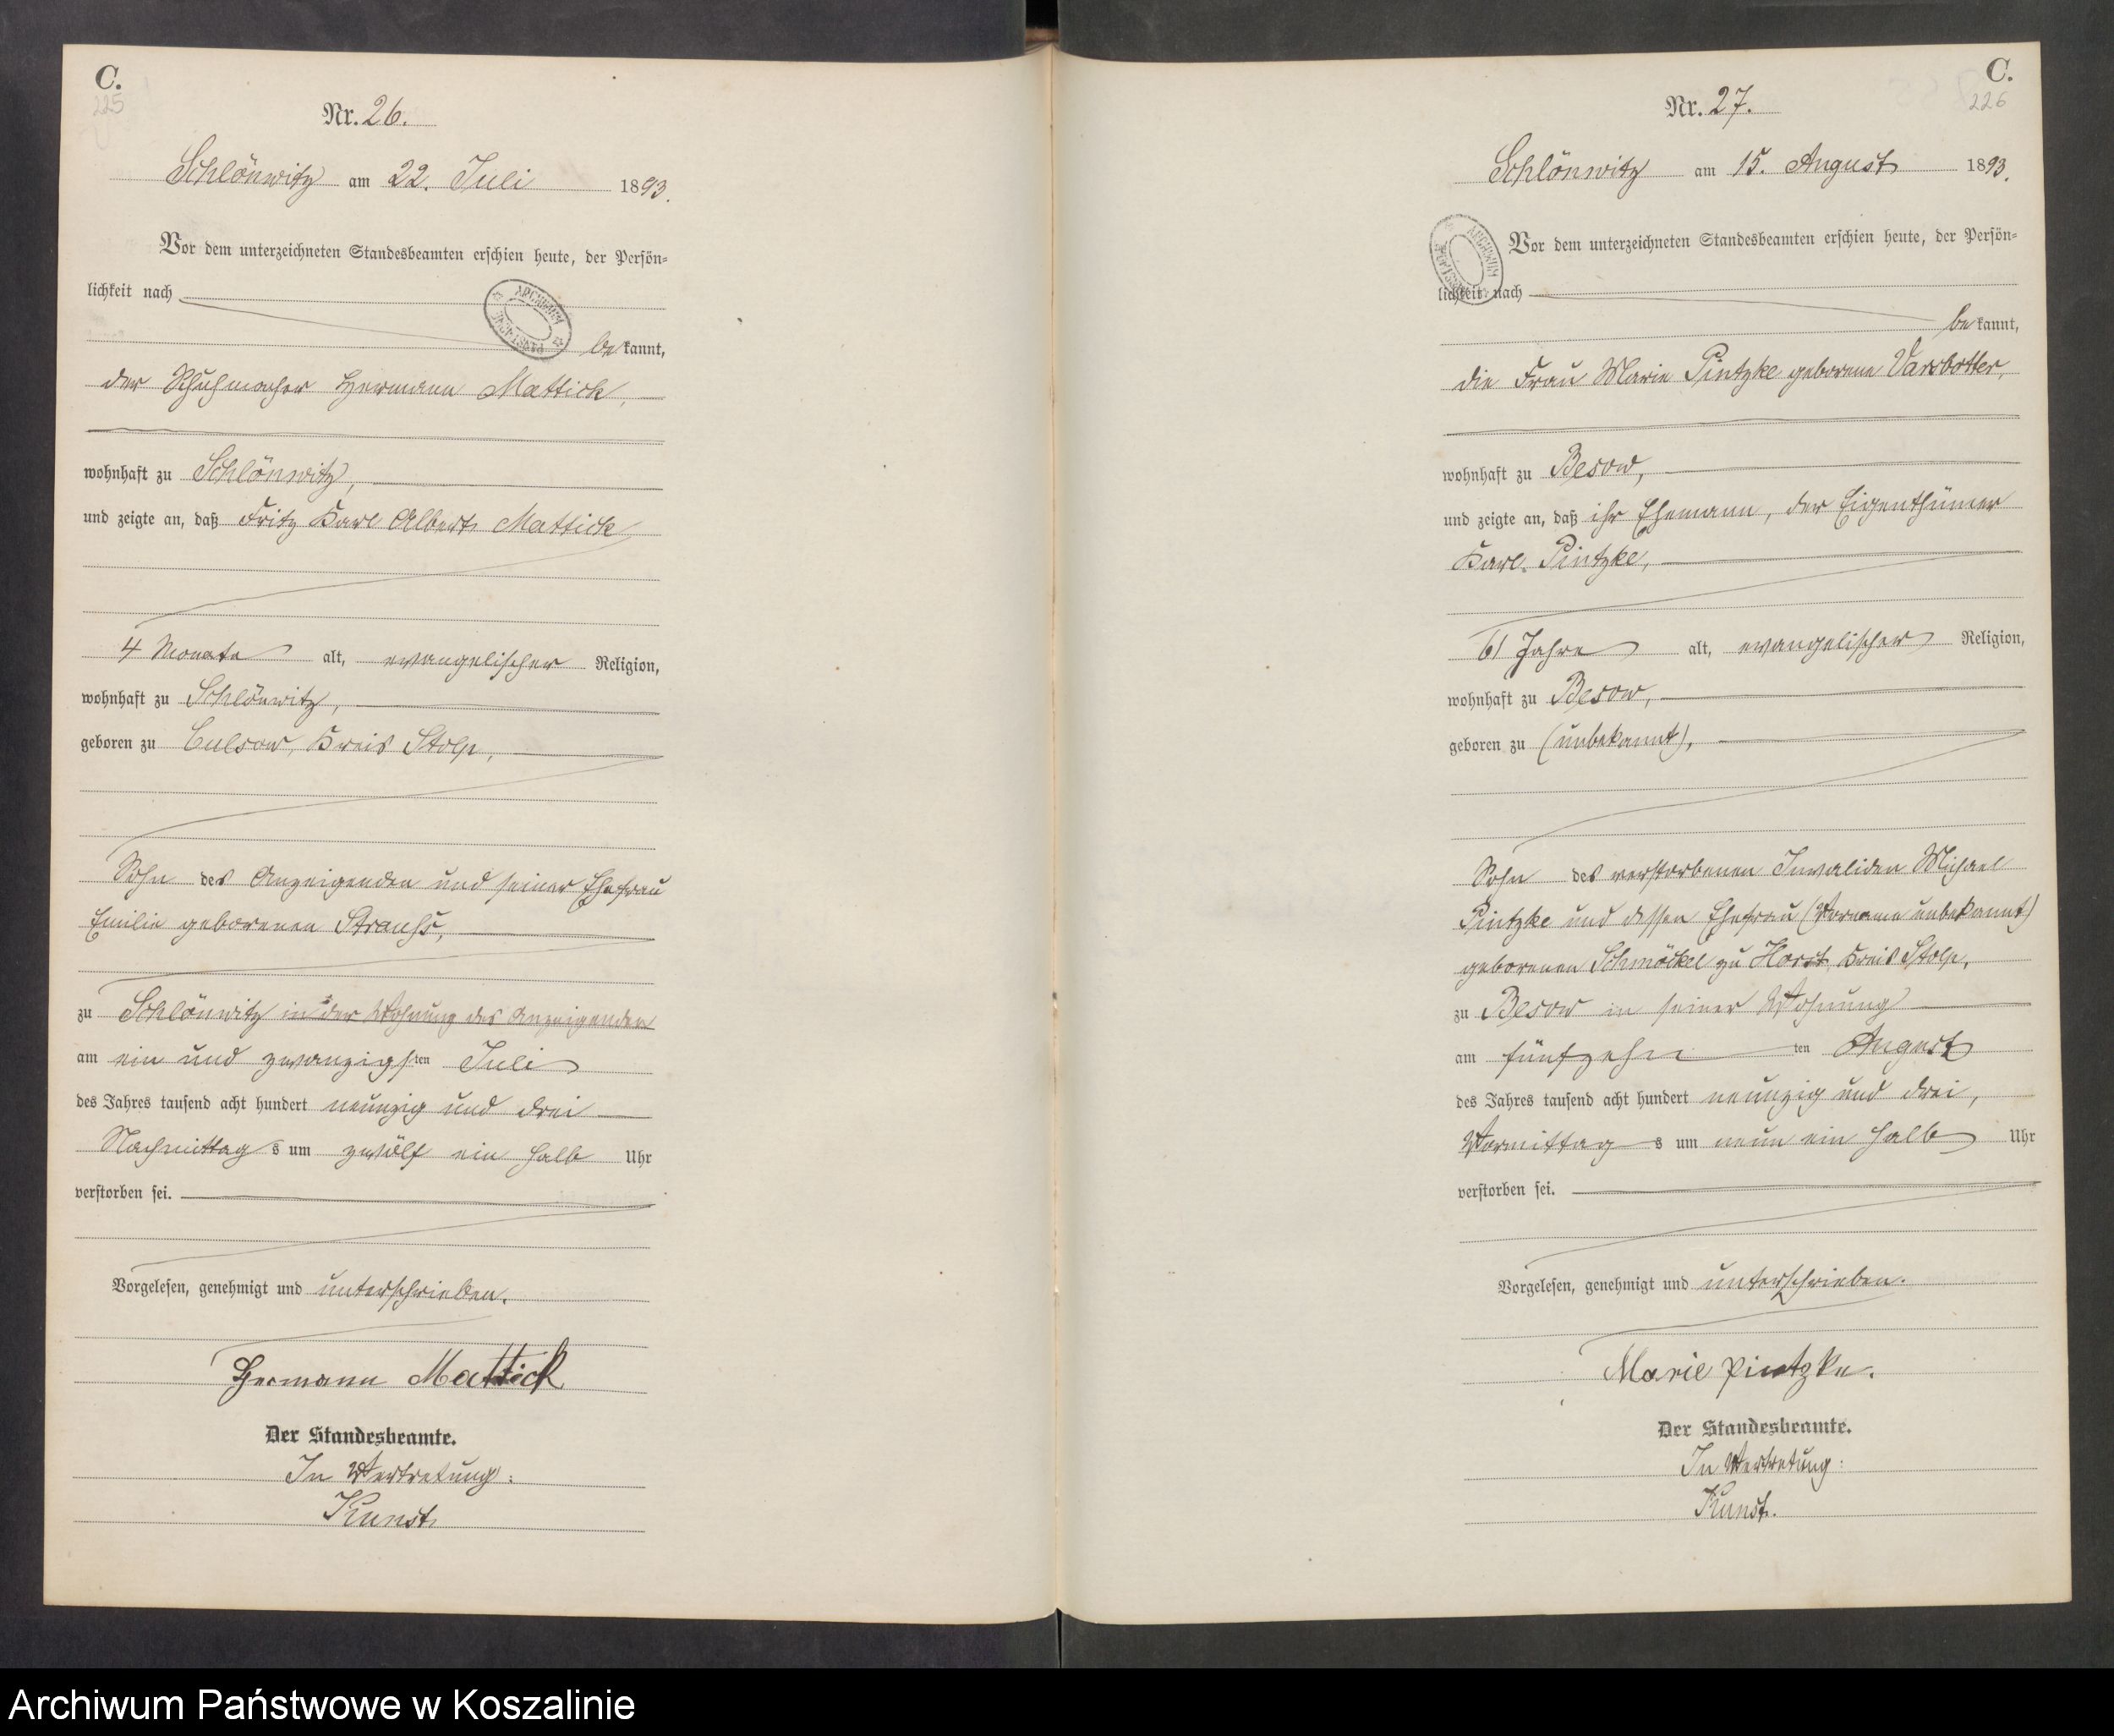 C.
225
Nr. 26.
Schlönwitz am 22. Juli 1893.
Vor dem unterzeichneten Standesbeamten erschien heute, der Persön-
lichkeit nach
ARCHIWUM
PAŃSTWOWE
bekannt,
der Schuhmacher Hermann Mattick,
wohnhaft zu Schlönwitz,
und zeigte an, daß Fritz Karl Albert Mattick
4 Monate alt, evangelischer Religion,
wohnhaft zu Schlönwitz,
geboren zu Culsow, Kreis Stolp,
Sohn des Anzeigenden und seiner Ehefrau
Emilie geborenen Strauhs,
zu Schlönwitz in der Wohnung des Anzeigenden
am ein und zwanzigsten Juli
des Jahres tausend acht hundert neunzig und drei
Nachmittags um zwölf ein halb Uhr
verstorben sei.
Vorgelesen, genehmigt und unterschrieben.
Hermann Mattick
Der Standesbeamte.
In Vertretung:
Kunst
C.
226
Nr. 27.
Schlönwitz am 15. August 1893.
ARCHIWUM
PAŃSTWOWE
Vor dem unterzeichneten Standesbeamten erschien heute, der Persön-
lichkeit nach
bekannt,
die Frau Marie Pintzke geborene Varsbotter,
wohnhaft zu Besow,
und zeigte an, daß ihr Ehemann, der Eigenthümer
Karl Pintzke,
61 Jahre alt, evangelischer Religion,
wohnhaft zu Besow,
geboren zu (unbekannt),
Sohn des verstorbenen Invaliden Michael
Pintzke und dessen Ehefrau (Vorname unbekannt)
geborenen Schmöckel zu Horst, Kreis Stolp,
zu Besow in seiner Wohnung
am fünfzehnten August
des Jahres tausend acht hundert neunzig und drei,
Vormittags um neun ein halb Uhr
verstorben sei.
Vorgelesen, genehmigt und unterschrieben.
Marie Pintzke.
Der Standesbeamte.
In Vertretung:
Kunst.
Archiwum Państwowe w Koszalinie